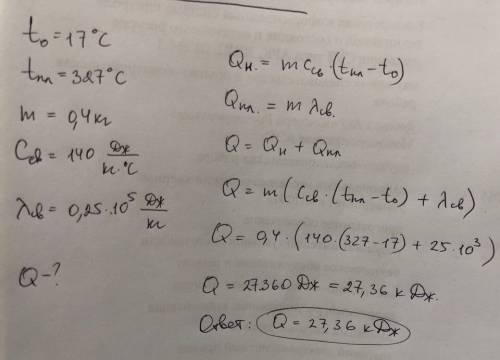 t₀ = 17°C
tпл = 327°C
m = 0,4 кг
Cсв = 140 Дж/кг·°C
λсв = 0,25·10⁵ Дж/кг
Q-?
Qн. = m Cсв·(tпл-t₀)
Qпл. = m λсв.
Q = Qн + Qпл
Q = m(Cсв·(tпл-t₀) + λсв)
Q = 0,4·(140·(327-17) + 25·10³)
Q = 27360 Дж = 27,36 кДж.
Ответ: Q = 27,36 кДж